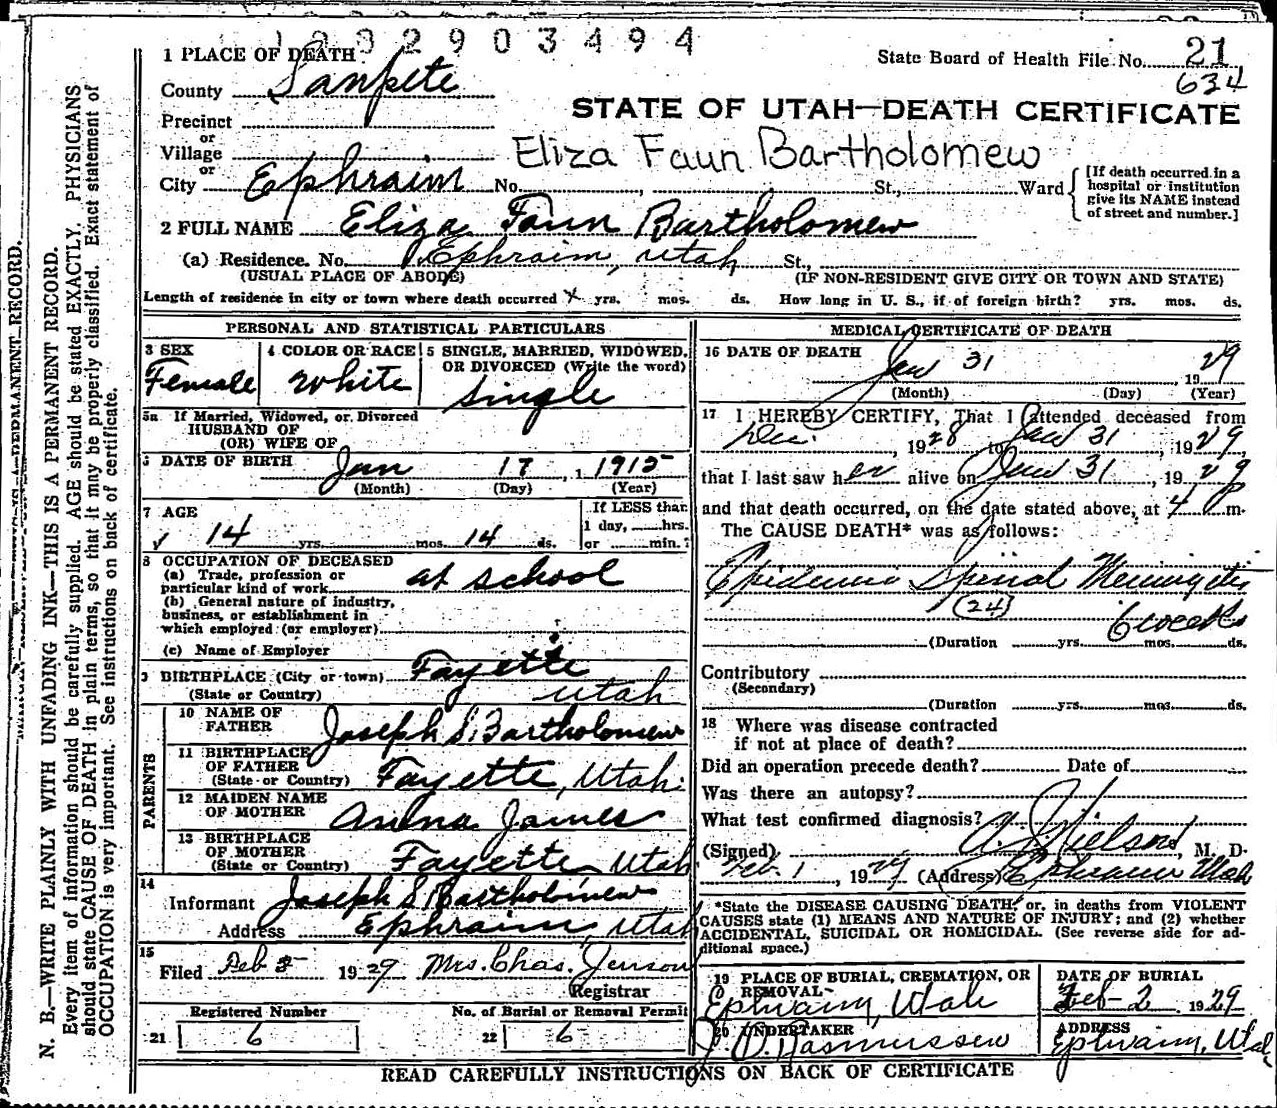 1 0 0 2 9 0 3 4 9 4
1 PLACE OF DEATH
State Board of Health File No. 21
634
County Sanpete
STATE OF UTAH—DEATH CERTIFICATE
Precinct
or
Village
Eliza Faun Bartholomew
or
City Ephraim No. , St., Ward
[If death occurred in a hospital or institution give its NAME instead of street and number.]
2 FULL NAME Eliza Faun Bartholomew
(a) Residence. No. Ephraim, Utah St.,
(USUAL PLACE OF ABODE) (IF NON-RESIDENT GIVE CITY OR TOWN AND STATE)
Length of residence in city or town where death occurred yrs. mos. ds. How long in U. S., if of foreign birth? yrs. mos. ds.
PERSONAL AND STATISTICAL PARTICULARS
3 SEX
Female
4 COLOR OR RACE
White
5 SINGLE, MARRIED, WIDOWED,
OR DIVORCED (Write the word)
Single
5a If Married, Widowed, or Divorced
HUSBAND OF
(OR) WIFE OF
6 DATE OF BIRTH Jan 17, 1915
(Month) (Day) (Year)
7 AGE
14 yrs. mos. 14 ds.
If LESS than
1 day, hrs.
or min.?
8 OCCUPATION OF DECEASED
(a) Trade, profession or
particular kind of work at school
(b) General nature of industry,
business, or establishment in
which employed (or employer)
(c) Name of Employer
9 BIRTHPLACE (City or town) Fayette
(State or Country) Utah
PARENTS
10 NAME OF
FATHER Joseph S. Bartholomew
11 BIRTHPLACE
OF FATHER
(State or Country) Fayette, Utah.
12 MAIDEN NAME
OF MOTHER Anena James
13 BIRTHPLACE
OF MOTHER
(State or Country) Fayette, Utah
14
Informant Joseph S Bartholomew
Address Ephraim, Utah
15
Filed Feb 2 1929 Mrs. Chas. Jenson
Registrar
Registered Number
21 6
No. of Burial or Removal Permit
22 6
MEDICAL CERTIFICATE OF DEATH
16 DATE OF DEATH
Jan 31, 1929
(Month) (Day) (Year)
17 I HEREBY CERTIFY, That I attended deceased from
Dec. 1928 to Jan 31, 1929
that I last saw her alive on Jan 31, 1929
and that death occurred, on the date stated above, at 4 P m.
The CAUSE DEATH* was as follows:
Epidemic Spinal Meningitis
(24)
6 weeks
(Duration yrs. mos. ds.
Contributory
(Secondary)
(Duration yrs. mos. ds.
18 Where was disease contracted
if not at place of death?
Did an operation precede death? Date of
Was there an autopsy?
What test confirmed diagnosis?
(Signed) A. J. Nielson, M. D.
Feb. 1, 1929 (Address) Ephraim Utah
*State the DISEASE CAUSING DEATH, or, in deaths from VIOLENT
CAUSES state (1) MEANS AND NATURE OF INJURY; and (2) whether
ACCIDENTAL, SUICIDAL OR HOMICIDAL. (See reverse side for ad-
ditional space.)
19 PLACE OF BURIAL, CREMATION, OR
REMOVAL
Ephraim, Utah
DATE OF BURIAL
Feb-2 1929
20 UNDERTAKER
J. D. Rasmussen
ADDRESS
Ephraim, Utah
READ CAREFULLY INSTRUCTIONS ON BACK OF CERTIFICATE
N. B.—WRITE PLAINLY WITH UNFADING INK—THIS IS A PERMANENT RECORD.
Every item of information should be carefully supplied. AGE should be stated EXACTLY. PHYSICIANS
should state CAUSE OF DEATH in plain terms, so that it may be properly classified. Exact statement of
OCCUPATION is very important. See instructions on back of certificate.